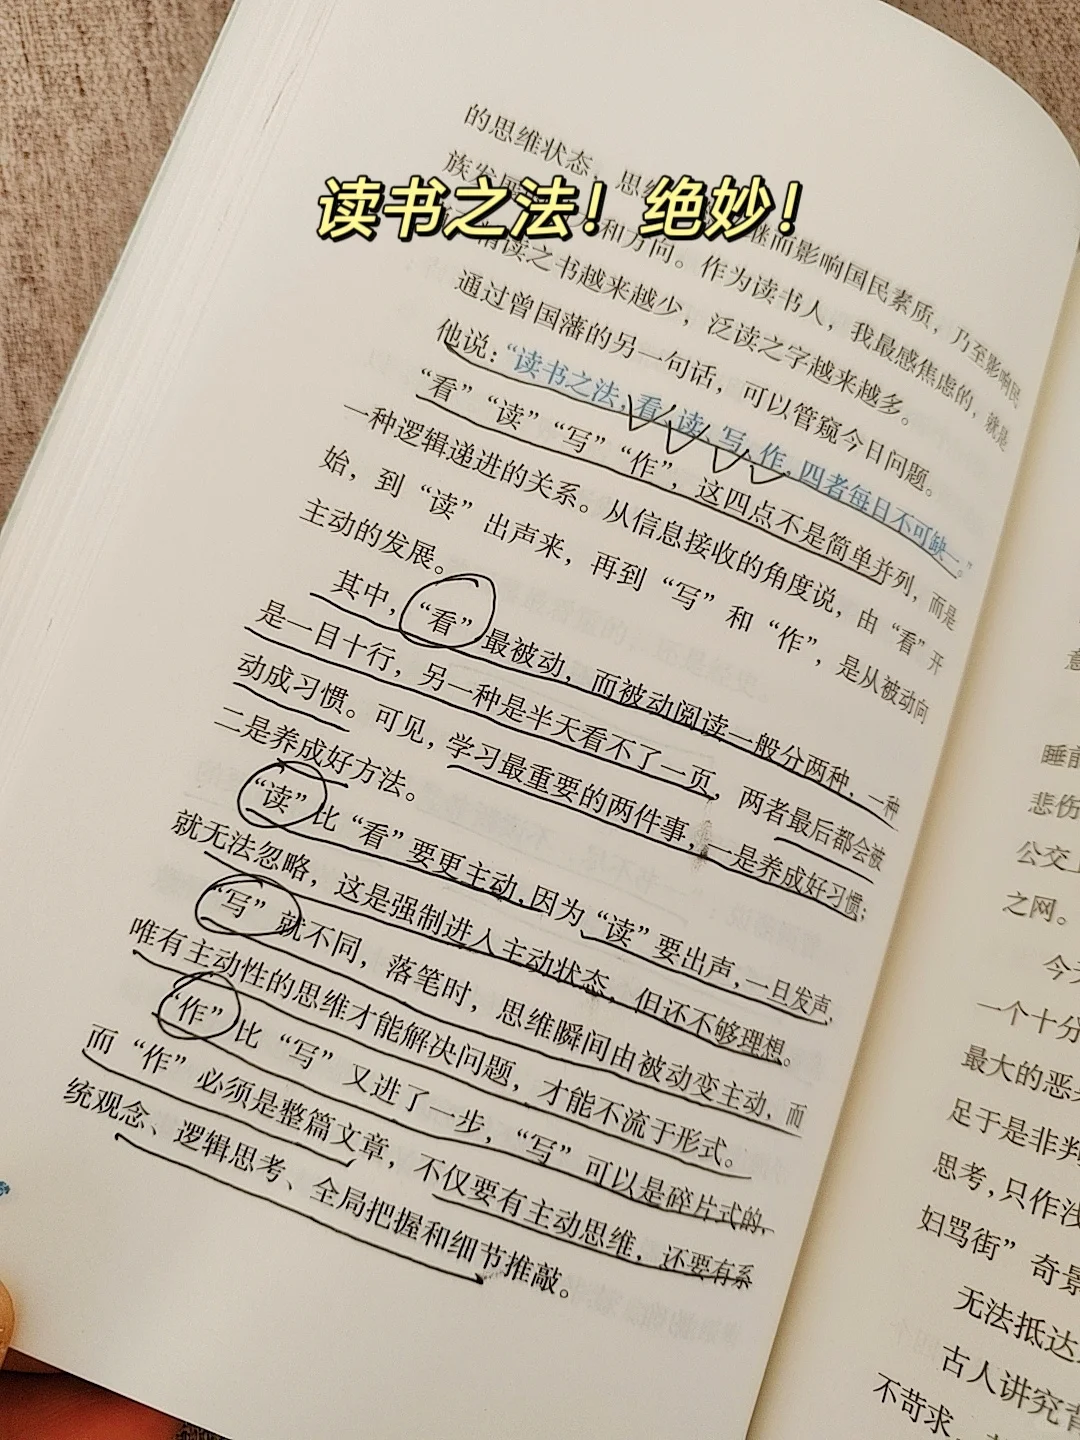 读书之法！绝妙！
的思维状态，思
继而影响国民素质，乃至影响民
族发展
和方向。作为读书人，我最感焦虑的，就是
精读之书越来越少，泛读之字越来越多。
通过曾国藩的另一句话，可以管窥今日问题。
他说：“读书之法，看、读、写、作，四者每日不可缺一。”
“看”“读”“写”“作”，这四点不是简单并列，而是
一种逻辑递进的关系。从信息接收的角度说，由“看”开
始，到“读”出声来，再到“写”和“作”，是从被动向
主动的发展。
其中，“看”最被动，而被动阅读一般分两种，一种
是一目十行，另一种是半天看不了一页，两者最后都会被
动成习惯。可见，学习最重要的两件事，一是养成好习惯；
二是养成好方法。
“读”比“看”要更主动，因为“读”要出声，一旦发声，
就无法忽略，这是强制进人主动状态，但还不够理想。
“写”就不同，落笔时，思维瞬间由被动变主动，而
唯有主动性的思维才能解决问题，才能不流于形式。
“作”比“写”又进了一步，“写”可以是碎片式的，
而“作”必须是整篇文章，不仅要有主动思维，还要有系
统观念、逻辑思考、全局把握和细节推敲。
意
睡前
悲伤
公交
之网。
今
一个十分
最大的恶
足于是非判
思考，只作浅
妇骂街”奇景
无法抵达
古人讲究背
不苛求，